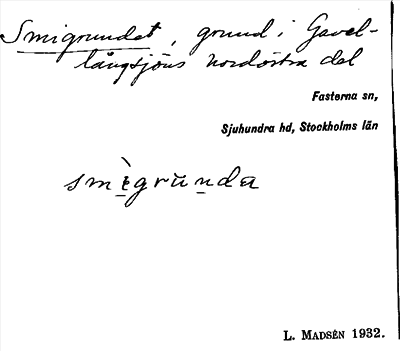 Smigrundet, grund i Gavel-
långsjöns nordöstra del
Fasterna sn,
Sjuhundra hd, Stockholms län
smìgrùnda
L. MADSÉN 1932.